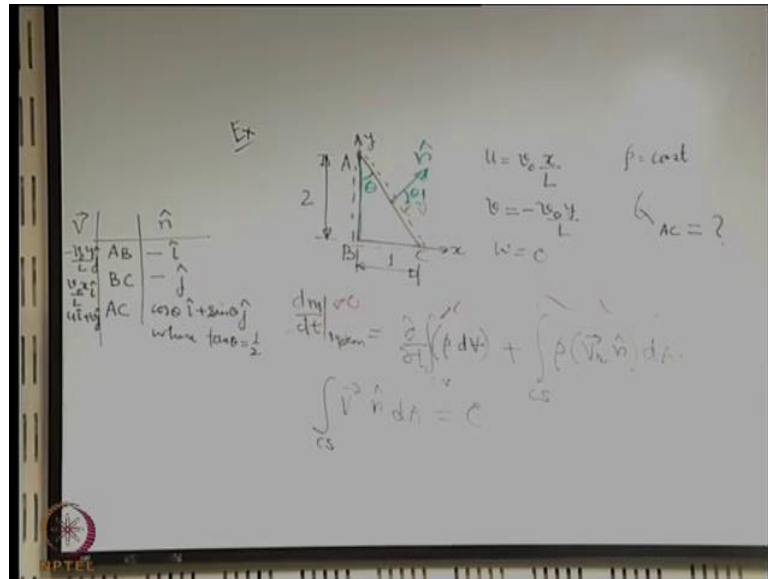 Ex
y
A
θ
n̂
θ
2
B
1
C
x
u = v₀ x/L
v = -v₀ y/L
w = 0
ρ = const
Q_AC = ?
V⃗ n̂
-v₀y/L ĵ AB -î
v₀x/L î BC -ĵ
uî+vĵ AC cosθ î + sinθ ĵ
where tanθ = 1/2
dm/dt|system = ∂/∂t ∫(ρ dV) + ∫CS ρ(V⃗r n̂) dA
∫CS V⃗ n̂ dA = 0
NPTEL